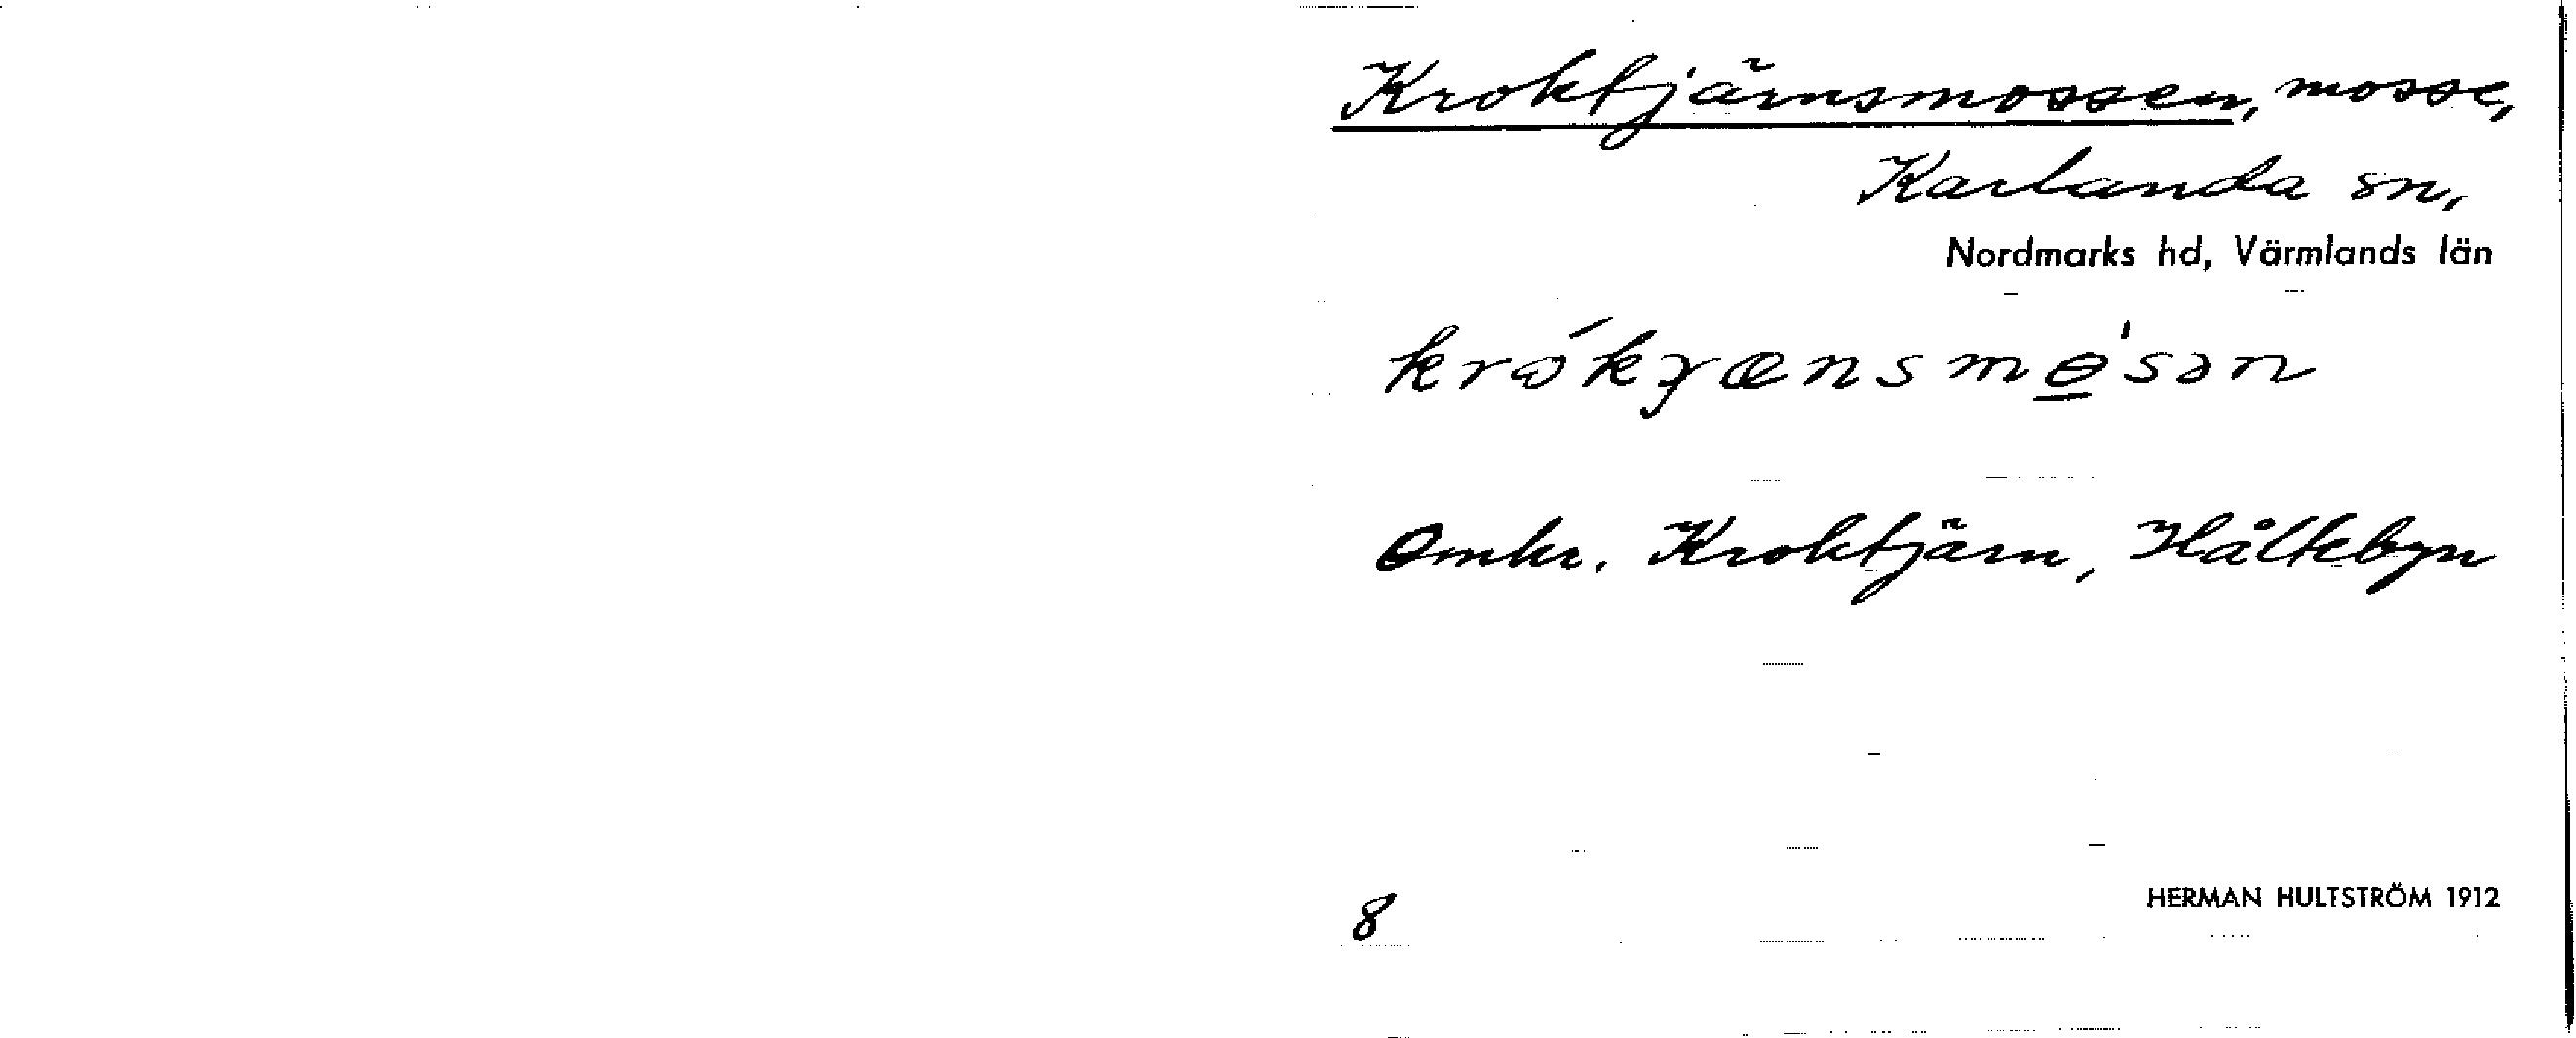 Kroktjärnsmossen, mosse,
Karlanda sn,
Nordmarks hd, Värmlands län
krɷ́kɟænsmɵ̠'sən
Omkr. Kroktjärn, Hältebyn
8
HERMAN HULTSTRÖM 1912